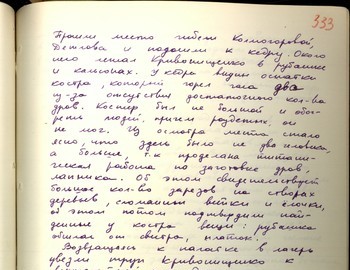 333
Прошли место гибели Колмогоровой,
Дятлова и подошли к кедру. Около
него лежал Кривонищенко в рубашке
и кальсонах. У кедра видны остатки
костра, который горел часа два
из-за отсутствия достаточного кол-ва
дров. Костер был не большой и обо-
греть людей, причем раздетых, он
не мог. Из осмотра места стало
ясно, что здесь было не два человека,
а больше, т.к. проделана титани-
ческая работа по заготовке дров,
лапника. Об этом свидетельствует
большое кол-во зарезов на стволах
деревьев, сломанные ветки и ёлочки,
об этом потом подтвердили най-
денные у костра вещи: рубашка
обшлаг от свитра, платок.
Возвращаясь к палатке в лагерь
увезли труп Кривонищенко к